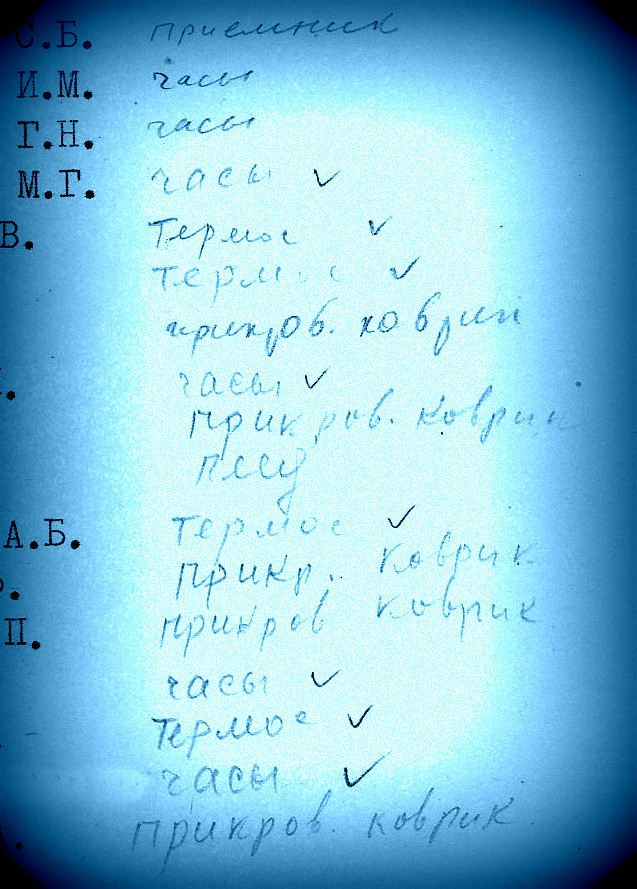 С.Б. приемник
И.М. часы
Г.Н. часы
М.Г. часы ✓
В. Термос ✓
термос ✓
прикров. коврик
часы ✓
прикров. коврик
плед
А.Б. термос ✓
прикр. коврик
П. прикров коврик
часы ✓
Термос ✓
часы ✓
прикров. коврик